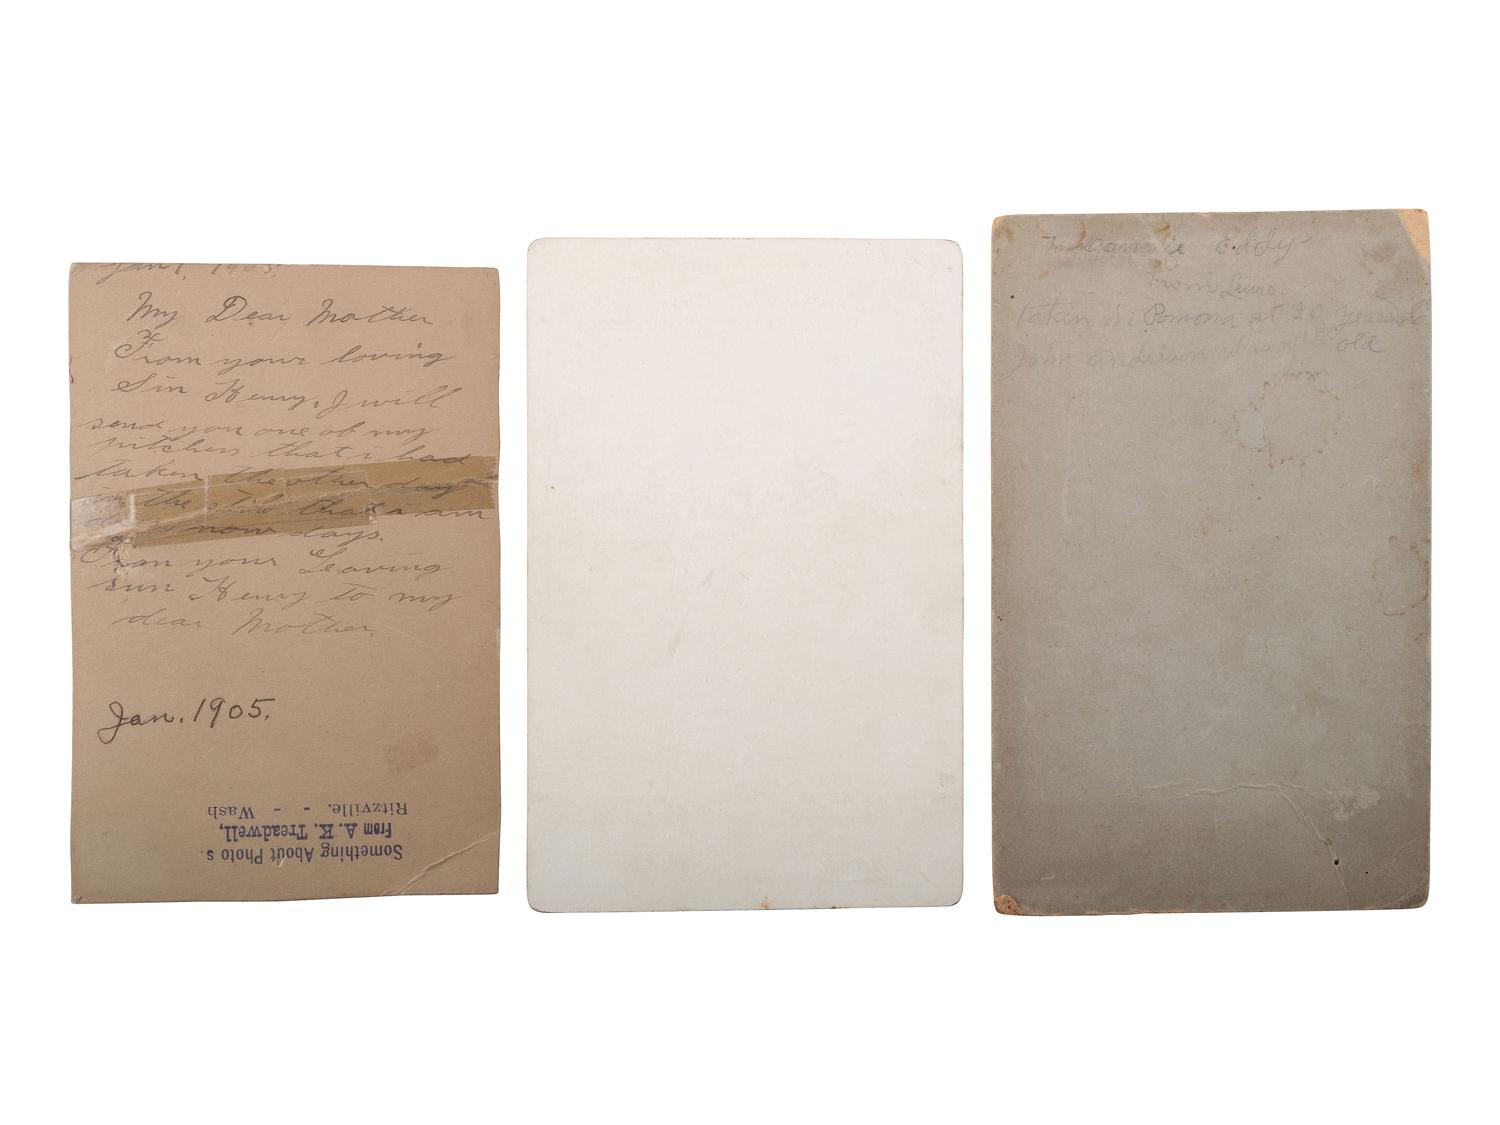 Jan 1, 1905.
My Dear Mother
From your loving
Sin Henry. I will
send you one of my
pitchers that i had
taken the other day
in the stib that i am
now days.
From your Leaving
sun Henry to my
dear Mother.
Jan. 1905.
Something About Photo s.
From A. K. Treadwell,
Ritzville. - - Wash
To Eddy
From Lewis.
Taken in Pomona at 20 years
John Anderson old